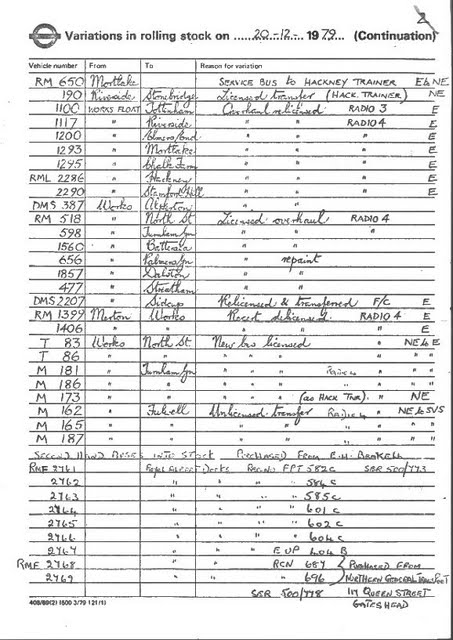 2
Variations in rolling stock on 20-12- 1979 (Continuation)
Vehicle number From To Reason for variation
RM 650 Mortlake SERVICE BUS to HACKNEY TRAINER E to NE
190 Riverside Stonebridge Licensed transfer (HACK. TRAINER) NE
1100 WORKS FLOAT Tottenham Overhaul relicensed RADIO 3 E
1117 " Riverside " " RADIO 4 E
1200 " Elmers End " " " E
1293 " Mortlake " " " E
1295 " Chalk Farm " " " E
RML 2286 " Hackney " " " E
2290 " Stamford Hill " " " E
DMS 387 Works Alperton
RM 518 " North St Licensed overhaul RADIO 4
598 " Turnham Gn " " "
1560 " Battersea " "
656 " Palmers Gn " repaint
1857 " Dalston " "
477 " Streatham " "
DMS 2207 " Sidcup Relicensed & transferred F/C E
RM 1399 Merton Works Recert delicensed RADIO 4 E
1406 " " " " " E
T 83 Works North St New bus licensed NE to E
T 86 " " " " " " "
M 181 " Turnham Gn " " " Radio 4 " "
M 186 " " " " " " " "
M 173 " " " " " (as HACK TNR). NE
M 162 " Fulwell Unlicensed transfer Radio 4 NE to SVS
M 165 " " " " " " "
M 187 " " " " " " "
SECOND HAND BUSES INTO STOCK PURCHASED FROM E.H. BRAKELL
RMF 2761 Royal Albert Docks REG. NO FPT 582C SBR 500/773
2762 " " " 584 C
2763 " " " 585 C
2764 " " " 601 C
2765 " " " 602 C
2766 " " " 604 C
2767 " EUP 404 B
RMF 2768 " RCN 687 PURCHASED FROM
2769 " " 696 NORTHERN GENERAL TRANSPORT
SBR 500/778 117 QUEEN STREET
GATESHEAD
408/89(2) 1500 3/79 121(1)